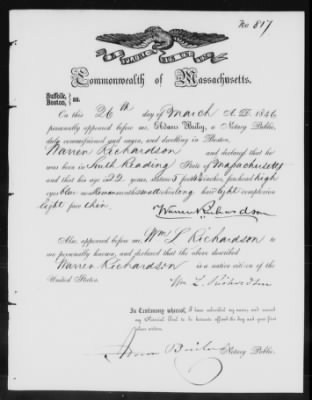 No 817
E PLURIBUS UNUM
Commonwealth of Massachusetts.
Suffolk,
Boston, } ss.
On this 26th day of March A. D. 1846
personally appeared before me, Adams Bailey, a Notary Public,
duly commissioned and sworn, and dwelling in Boston,
Warren Richardson and declared that he
was born in South Reading State of Massachusetts
and that his age 22 years, stature 5 feet inches, forehead high
eyes blue nose mouth small chin long hair light complexion
light face thin.
Warren Richardson
Also, appeared before me, Wm L Richardson to
me personally known, and declared that the above described
Warren Richardson is a native citizen of the
United States.
Wm L. Richardson
In Testimony whereof, I have subscribed my name and caused
my Notarial Seal to be hereunto affixed the day and year first
above written.
Adams Bailey Notary Public.